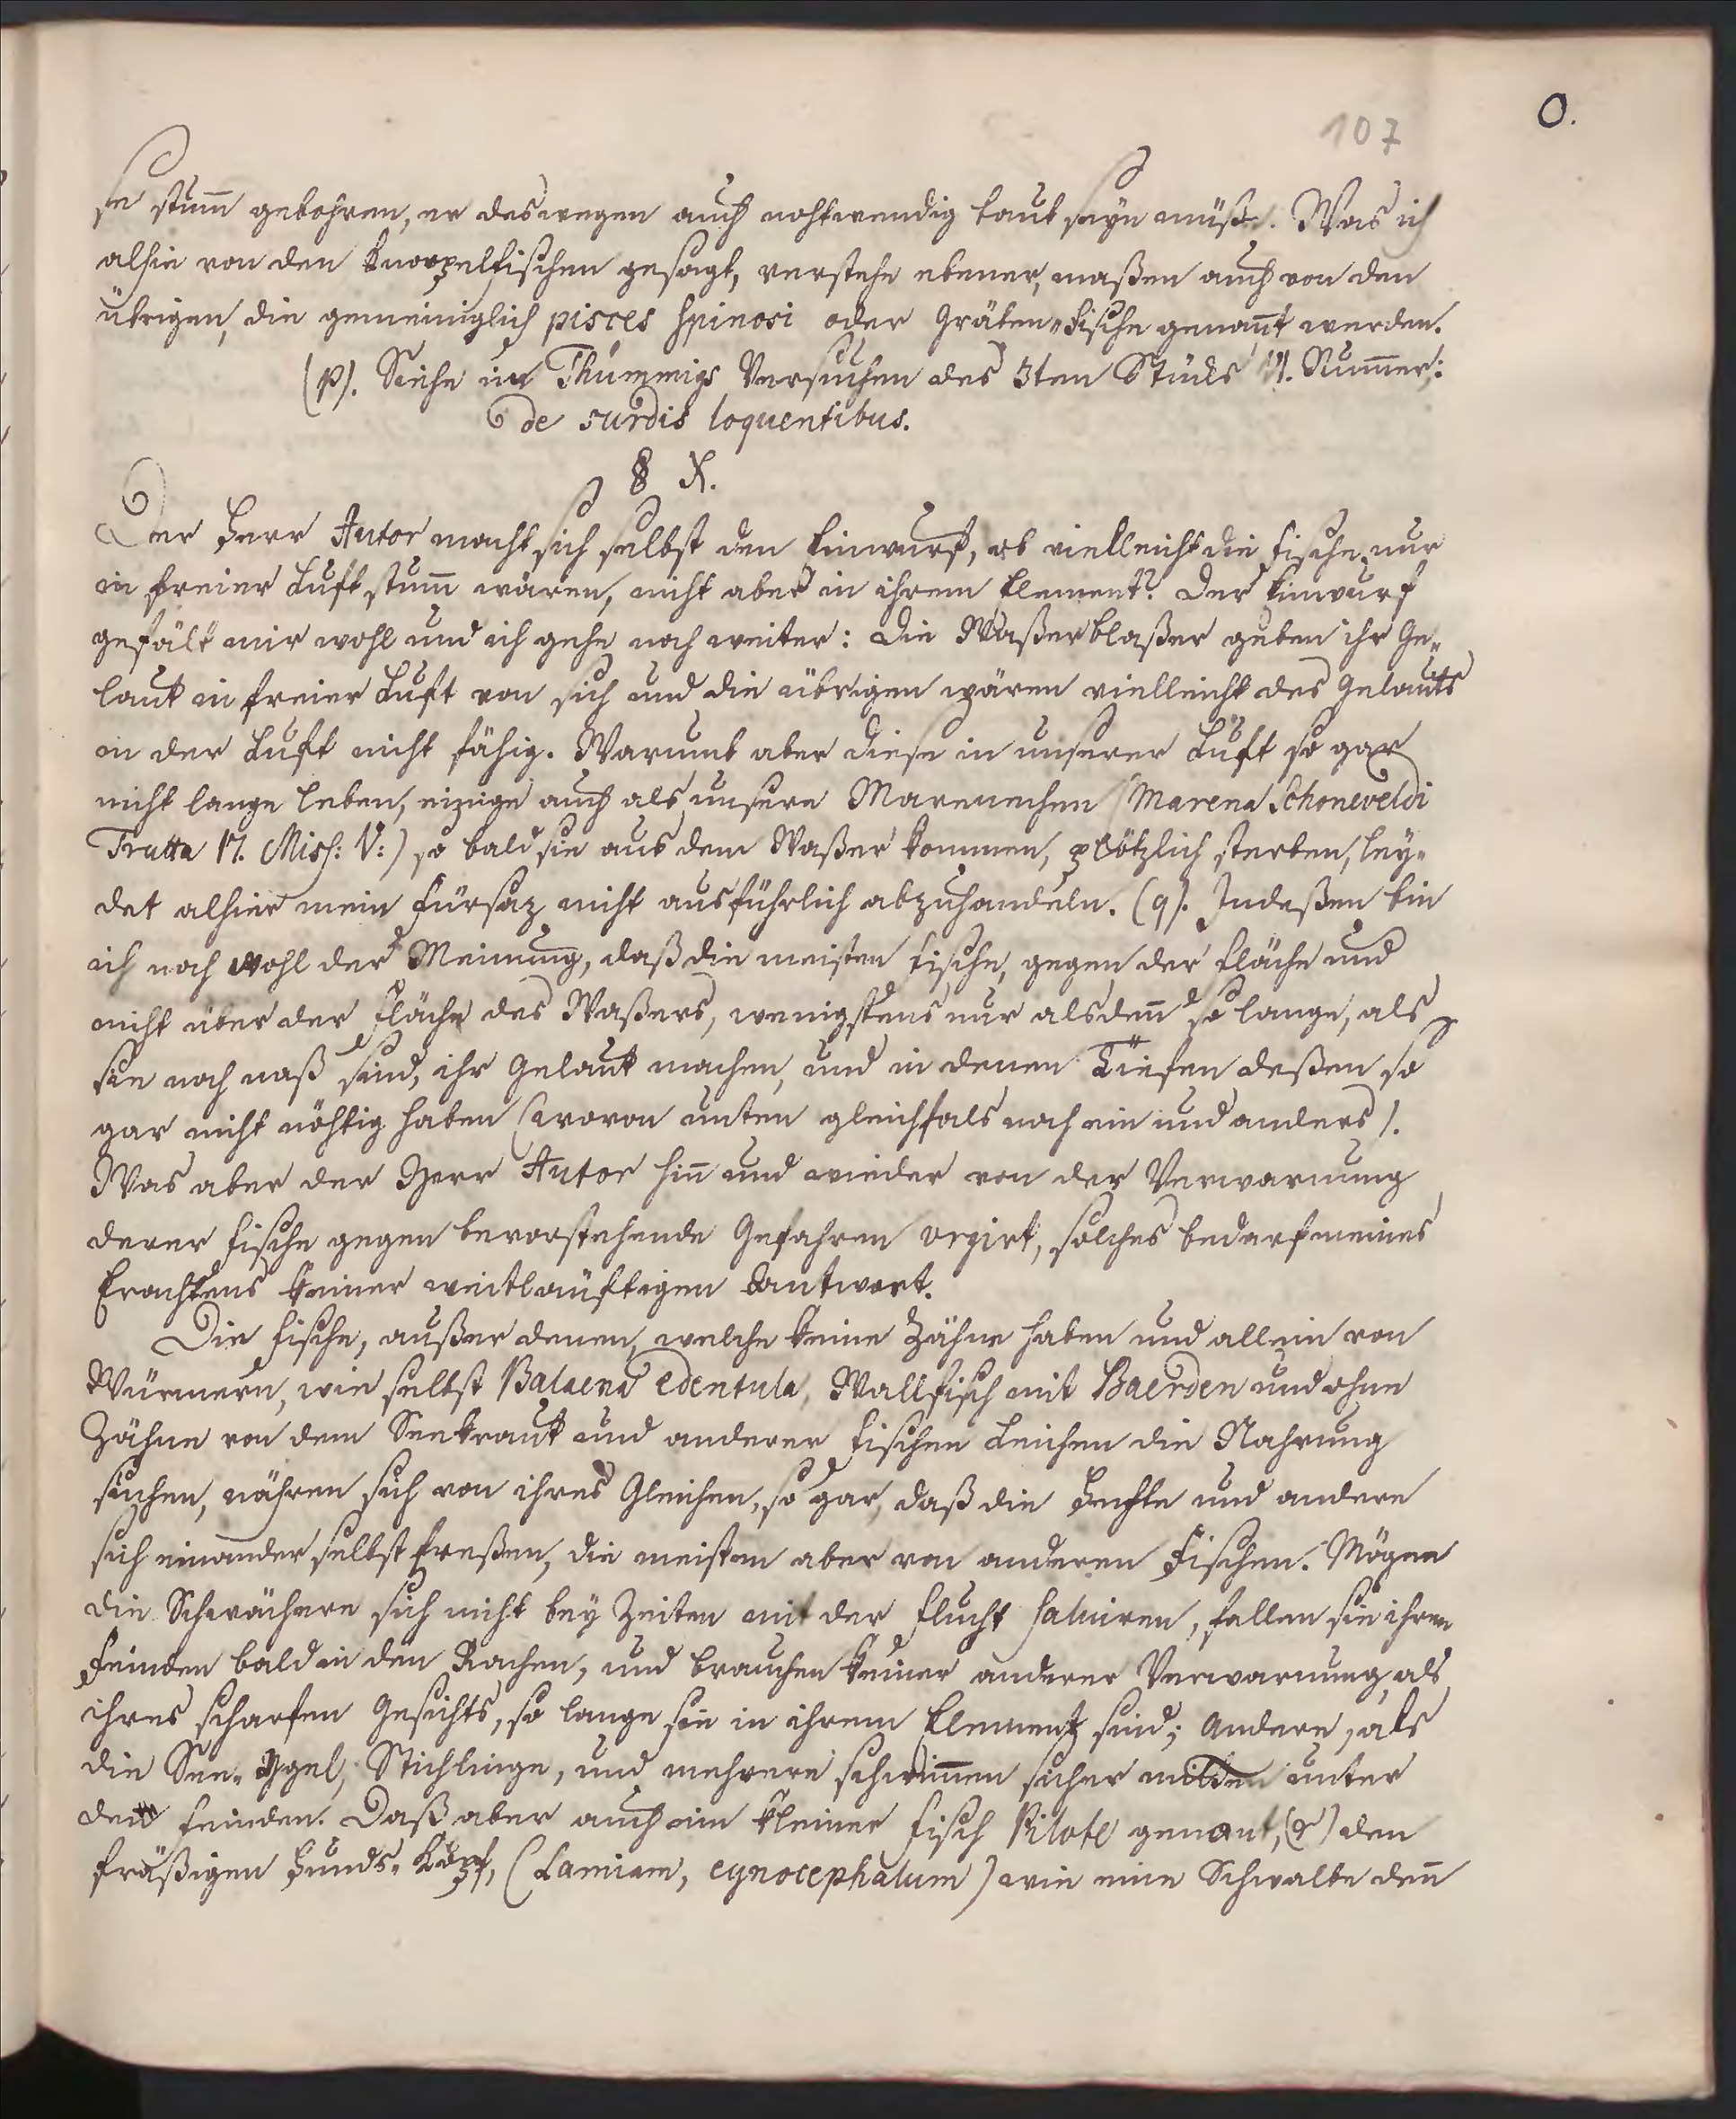 107
O.
se stum̅ gebohren, er deswegen auch nohtwendig taub seyn müße. Was ich
alhie von den Knorpelfischen gesagt, verstehe ebener, maßen auch von den
übrigen, die gemeiniglich pisces spinosi oder Gräten-Fische genan̅t werden.
(p). Siehe in Thümmigs Versuchen des 3ten Stücks VI. Num̅er:
de surdis loquentibus.
§ X.
Der Herr Autor macht sich selbst den Einwurf, ob vielleicht die Fische nur
in freier Luft stum̅ wären, nicht aber in ihrem Element? Der Einwurf
gefält mir wohl und ich gehe noch weiter: Die Waßerblaßer geben ihr Ge-
laut in freier Luft von sich und die übrigen wären vielleicht des Gelauts
in der Luft nicht fähig. Warumb aber diese in unserer Luft so gar
nicht lange leben, einige auch als unsere Marenechen (Marena Schoneveldi
Trutta 17. Miss: V:) so bald sie aus dem Waßer kommen, plötzlich sterben, ley-
det alhier mein Fürsaz nicht ausführlich abzuhandeln. (q). Indeßen bin
ich noch wohl der Meinung, daß die meisten Fische, gegen der Fläche und
nicht über der Fläche des Waßers, wenigstens nur alsden̅ so lange, als
sie noch naß sind, ihr Gelaut machen, und in denen Tiefen deßen so
gar nicht nöhtig haben (wovon unten gleichfals noch ein und anders).
Was aber der Herr Autor hin̅ und wieder von der Verwarnung
derer Fische gegen bevorstehende Gefahren urgirt, solches bedarf meines
Erachtens keiner weitläuftigen Antwort.
Die Fische, außer denen, welche keine Zähne haben und allein von
Würmern, wie selbst Balaena edentula, Wallfisch mit Baerden und ohne
Zähne von dem Seekraut und anderer Fischen Leichen die Nahrung
suchen, nähren sich von ihres Gleichen, so gar, daß die Hechte und andere
sich einander selbst freßen, die meisten aber von anderen Fischen. Mögen
die Schwächere sich nicht bey Zeiten mit der Flucht salviren, fallen sie ihren
Feinden bald in den Rachen, und brauchen keiner anderer Verwarnung, als
ihres scharfen Gesichts, so lange sie in ihrem Element sind; Andere, als
die See-Igel, Stichlinge, und mehrere schwim̅en sicher mitten unter
den Feinden. Daß aber auch ein kleiner Fisch Pilote genant, (r) den
fräßigen Hunds-Kopf, (Lamiam, cynocephalum) wie eine Schwalbe den̅